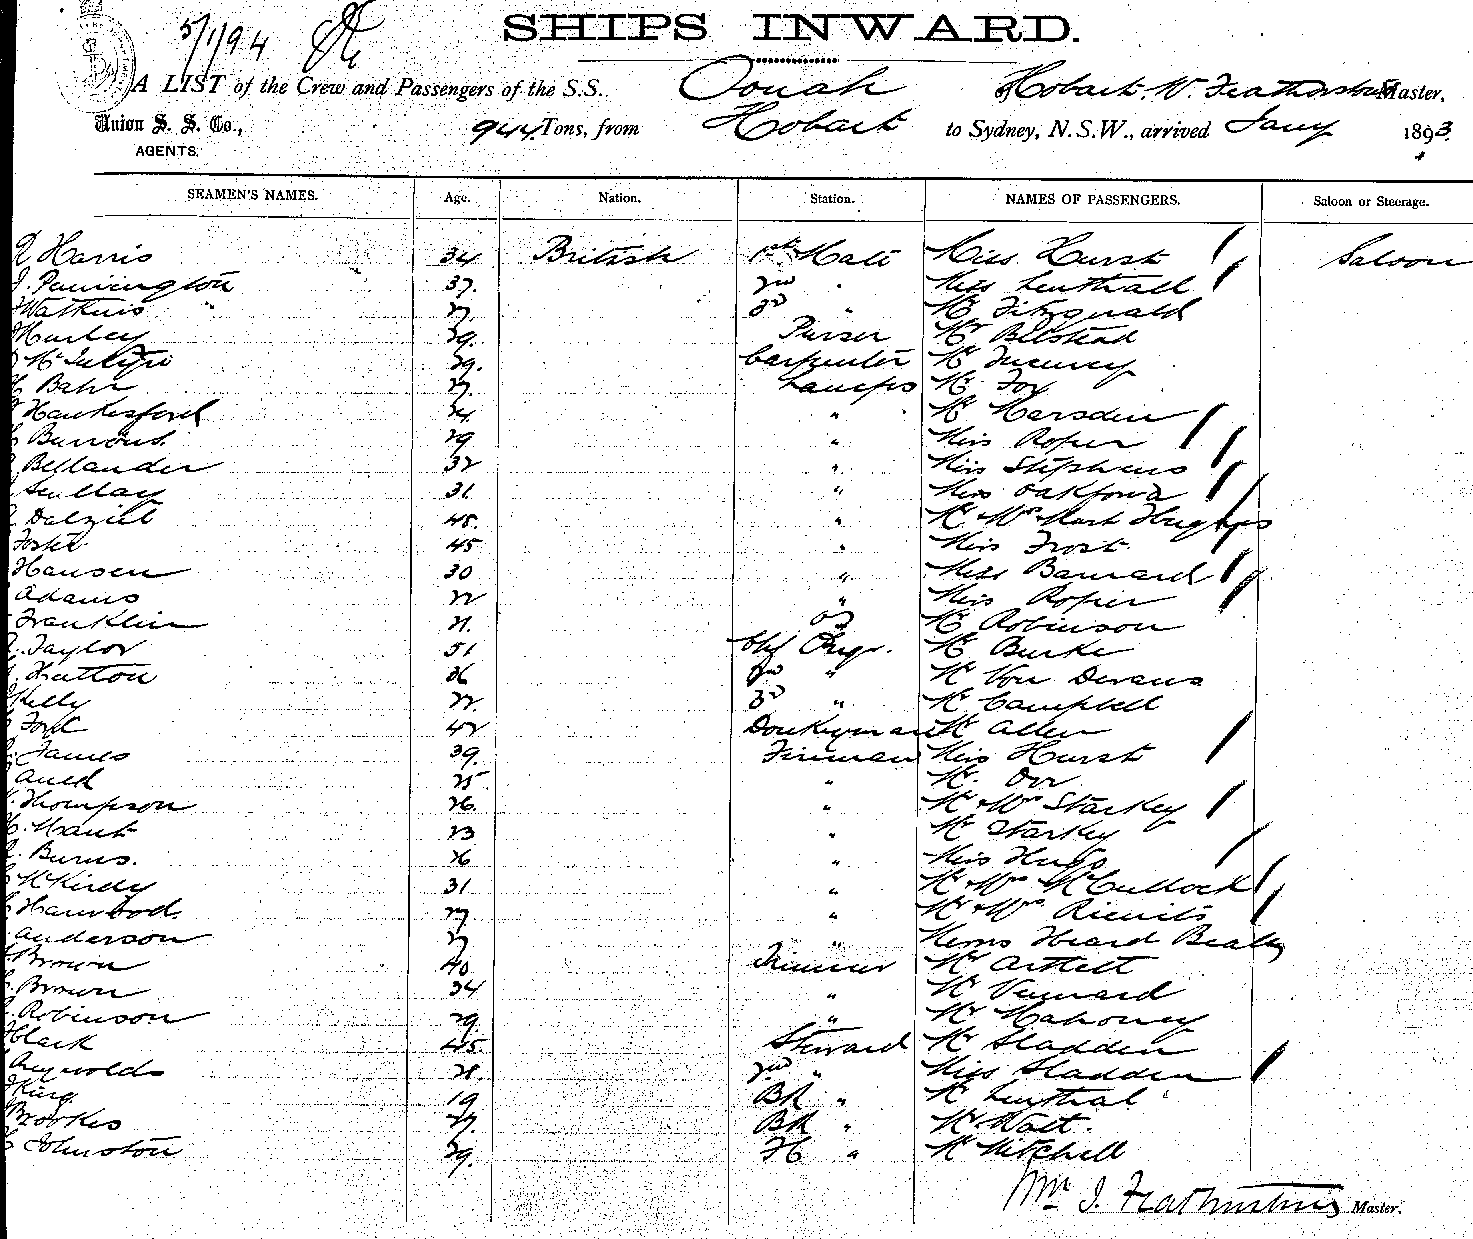 5/1/94
SHIPS INWARD.
A LIST of the Crew and Passengers of the S.S. Oonah of Hobart, W. Featherstone Master,
Union S. S. Co., 944 Tons, from Hobart to Sydney, N.S.W., arrived Jany 1893
AGENTS.
SEAMEN'S NAMES. Age. Nation. Station. NAMES OF PASSENGERS. Saloon or Steerage.
Harris 34 British 1st Mate Miss Hurst Saloon
J. Pennington 37. 2nd " Miss Lenthall
Watkins 27. 3rd " Mr Fitzgerald
Hurley 29. Purser Mr Bilstead
McIntyre 29. Carpenter Mr
Bahr 27. Lamps Mr Fox
Hawkesford 24. " Mr Marsden
Burrows. 29 " Miss Roper
Bellander 32 " Miss Stephens
31. " Miss Oakford
Dalziel 45. " Mr & Mrs Mark
Foster 45 " Miss Frost.
Hansen 30 " Miss Barnard
Adams 22 " Miss Roper
Franklin 21. OS Mr Robinson
Taylor 51 Chf Engr. Mr Burke
Hutton 36 2nd " Mr Von
Kelly 22. 3rd " Mr Campbell
Ford 42 Donkeyman Mr Allen
James 39. Fireman Miss Hurst
Auld 25. " Mr. Orr
Thompson 26. " Mr & Mrs Starkey
23 " Mr Starkey
Burns. 26 " Miss
McKirdy 31 " Mr & Mrs McCullock
Harwood 27 " Mr & Mrs
Anderson 27 " Heard
Brown 40. Trimmer Mr
Brown 34 " Mr Vennard
Robinson 29. " Mr Mahoney
Black 45. Steward Mr Sladden
Reynolds 28. 2nd " Miss Sladden
King. 19 BR " Mr Lenthal
Brookes 27. BR " Mr Watt.
Johnston 29. F " Mr Mitchell
Wm J. Featherstone Master.